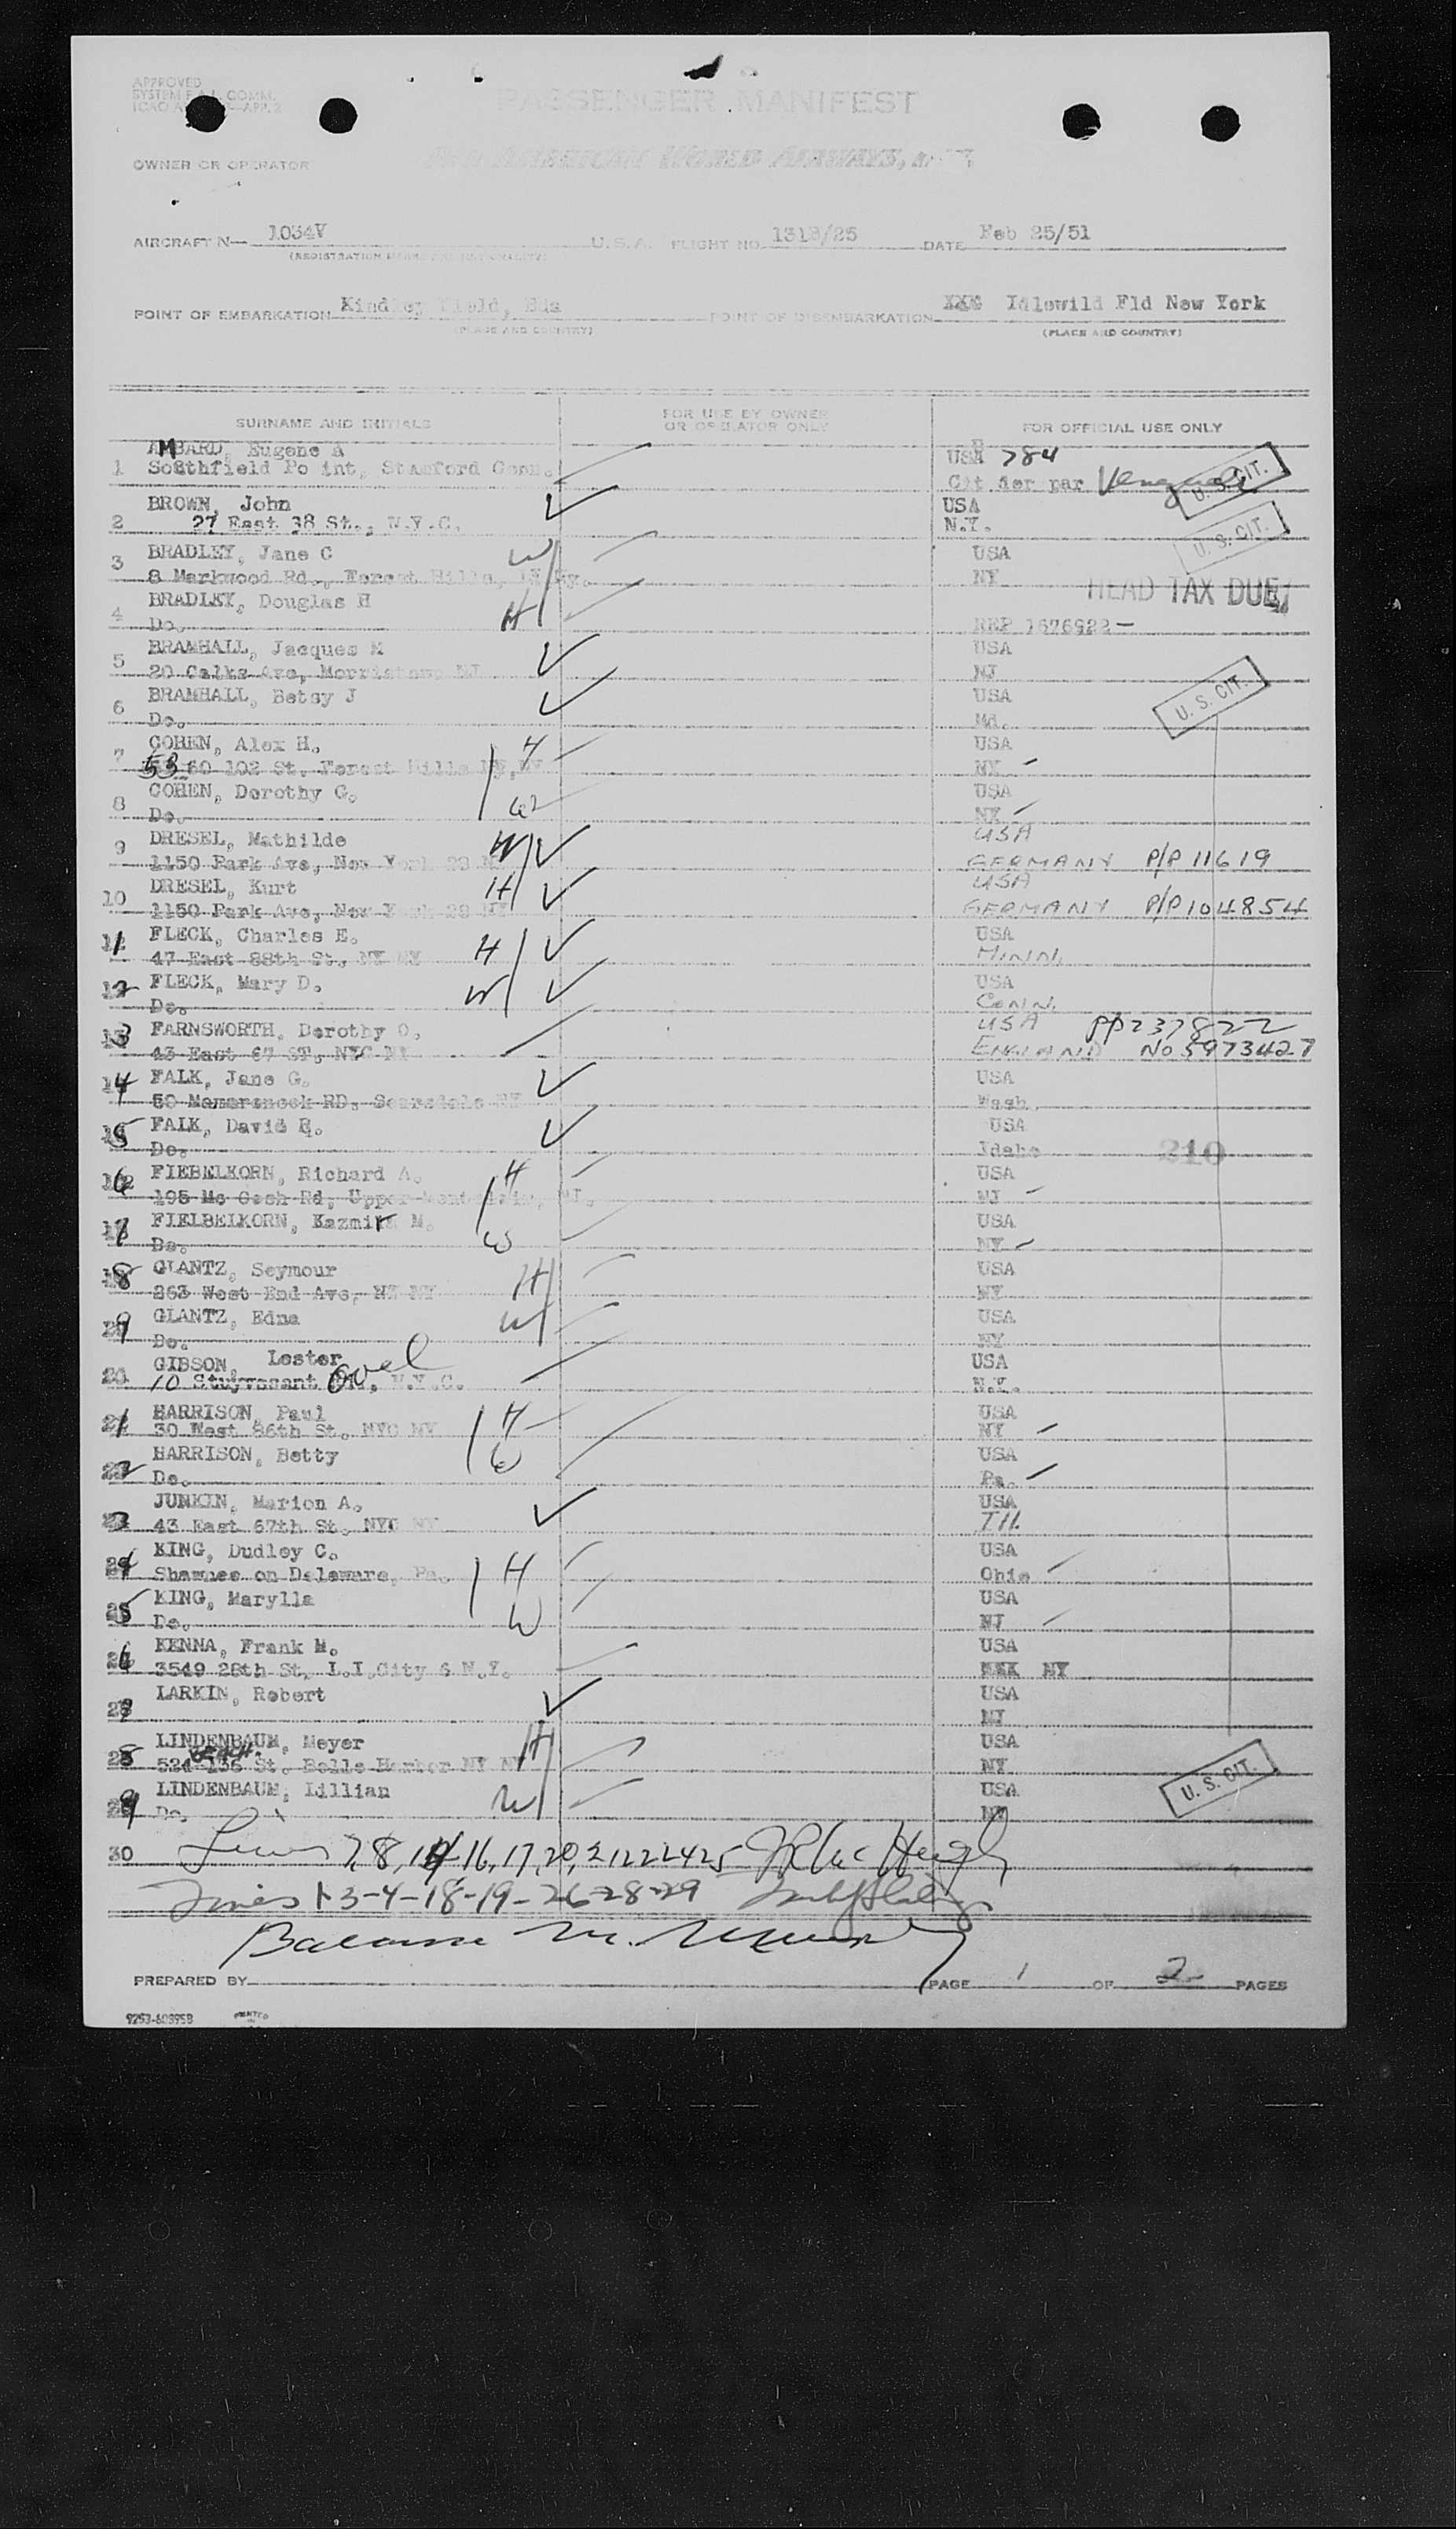 APPROVED
PASSENGER MANIFEST
OWNER OR OPERATOR PAN AMERICAN WORLD AIRWAYS, INC.
AIRCRAFT N— 1034V U.S.A. FLIGHT NO. 131B/25 DATE Feb 25/51
(REGISTRATION MARKS AND NATIONALITY)
POINT OF EMBARKATION Kindley Field, Bda POINT OF DISEMBARKATION Idlewild Fld New York
(PLACE AND COUNTRY) (PLACE AND COUNTRY)
SURNAME AND INITIALS FOR USE BY OWNER OR OPERATOR ONLY FOR OFFICIAL USE ONLY
AMBARD, Eugene A USA 784
1 Southfield Po int, Stamford Conn. Cit der par U.S. CIT.
BROWN, John USA
2 27 East 38 St., N.Y.C. N.Y. U.S. CIT.
3 BRADLEY, Jane C W USA
8 Markwood Rd., Forest Hills, NY HEAD TAX DUE
4 BRADLEY, Douglas H H
Do. REP 1676922—
5 BRAMHALL, Jacques M USA
Ave, Morristown NJ NJ
6 BRAMHALL, Betsy J USA U.S. CIT.
Do. Md.
7 COHEN, Alex H. H USA
60 102 St, Forest Hills NY, NY NY
8 COHEN, Dorothy G. W USA
Do. NY
9 DRESEL, Mathilde W USA
1150 Park Ave, New York 28 NY GERMANY P/P 11619
10 DRESEL, Kurt H USA
1150 Park Ave, New York 28 NY GERMANY P/P 104854
11 FLECK, Charles E. H USA
47 East 88th St., NY NY MINN.
12 FLECK, Mary D. W USA
Do. CONN.
13 FARNSWORTH, Dorothy O, USA PP 237822
43 East 67 ST, NYC NY ENGLAND No 5973427
14 FALK, Jane G. USA
50 Mamaroneck RD, Scarsdale NY Wash.
15 FALK, David R. USA
Do. Idaho 210
16 FIEBELKORN, Richard A. H USA
195 Mc Cosh Rd, Upper Montclair, NJ. NJ
17 FIELBELKORN, Kazmir M. W USA
Do. NY
18 GLANTZ, Seymour H USA
263 West End Ave, NY NY NY
19 GLANTZ, Edna W USA
Do. NY
20 GIBSON, Lester USA
10 Stuyvesant Oval, N.Y.C. N.Y.
21 HARRISON, Paul H USA
30 West 86th St. NYC NY NY
22 HARRISON, Betty W USA
Do. Pa.
23 JUNKIN, Marion A. USA
43 East 67th St. NYC NY Ill.
24 KING, Dudley C. H USA
Shawnee on Delaware, Pa. Ohio
25 KING, Marylla W USA
Do. NJ
26 KENNA, Frank M. USA
3549 28th St, L.I.City 6 N.Y. NY
27 LARKIN, Robert USA
28 LINDENBAUM, Meyer H USA
524 BEACH 136 St. Belle Harbor NY NY NY
29 LINDENBAUM, Lillian W USA U.S. CIT.
Do. NY
30 7, 8, 16, 17, 20, 21 22 24 25
1-3-4-18-19-26-28-29
Balance
PREPARED BY PAGE 1 OF 2 PAGES